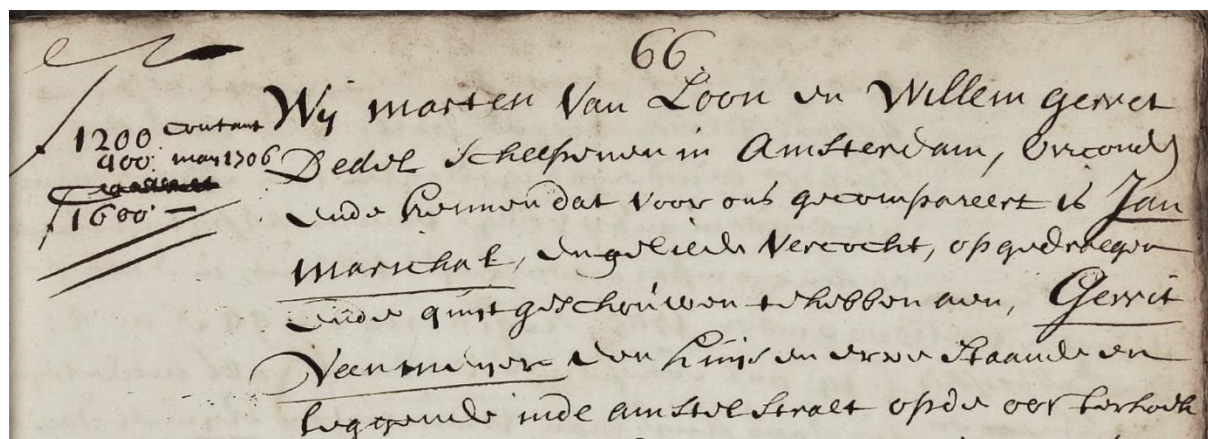 66.
1200 contant
400 may 1706
1600 —
Wij marten Van Loon en Willem gerret
Dedel scheepenen in Amsterdam, Orconden
ende kennen dat voor ons gecompareert is Jan
Marschal, en geliede Vercocht, opgedraegen
ende quijt geschouwen te hebben aen, Gerrit
Veenmeyer een huijs en erve staande en
leggende inde amstelstraet op de ooster hoek